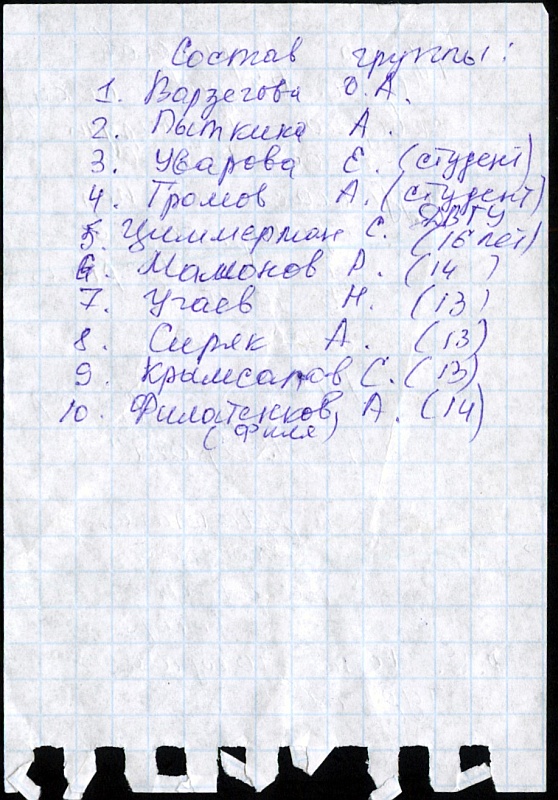 Состав группы:
1. Варзегова О.А.
2. Пыткина А.
3. Уварова Е. (студент)
4. Громов А. (студент)
ДВГУ
5. Циммерман С. (16 лет)
6. Мамонов Р. (14)
7. Угаев Н. (13)
8. Сиряк А. (13)
9. Крымсалов С. (13)
10. Филатенков А. (14)
(Филя)